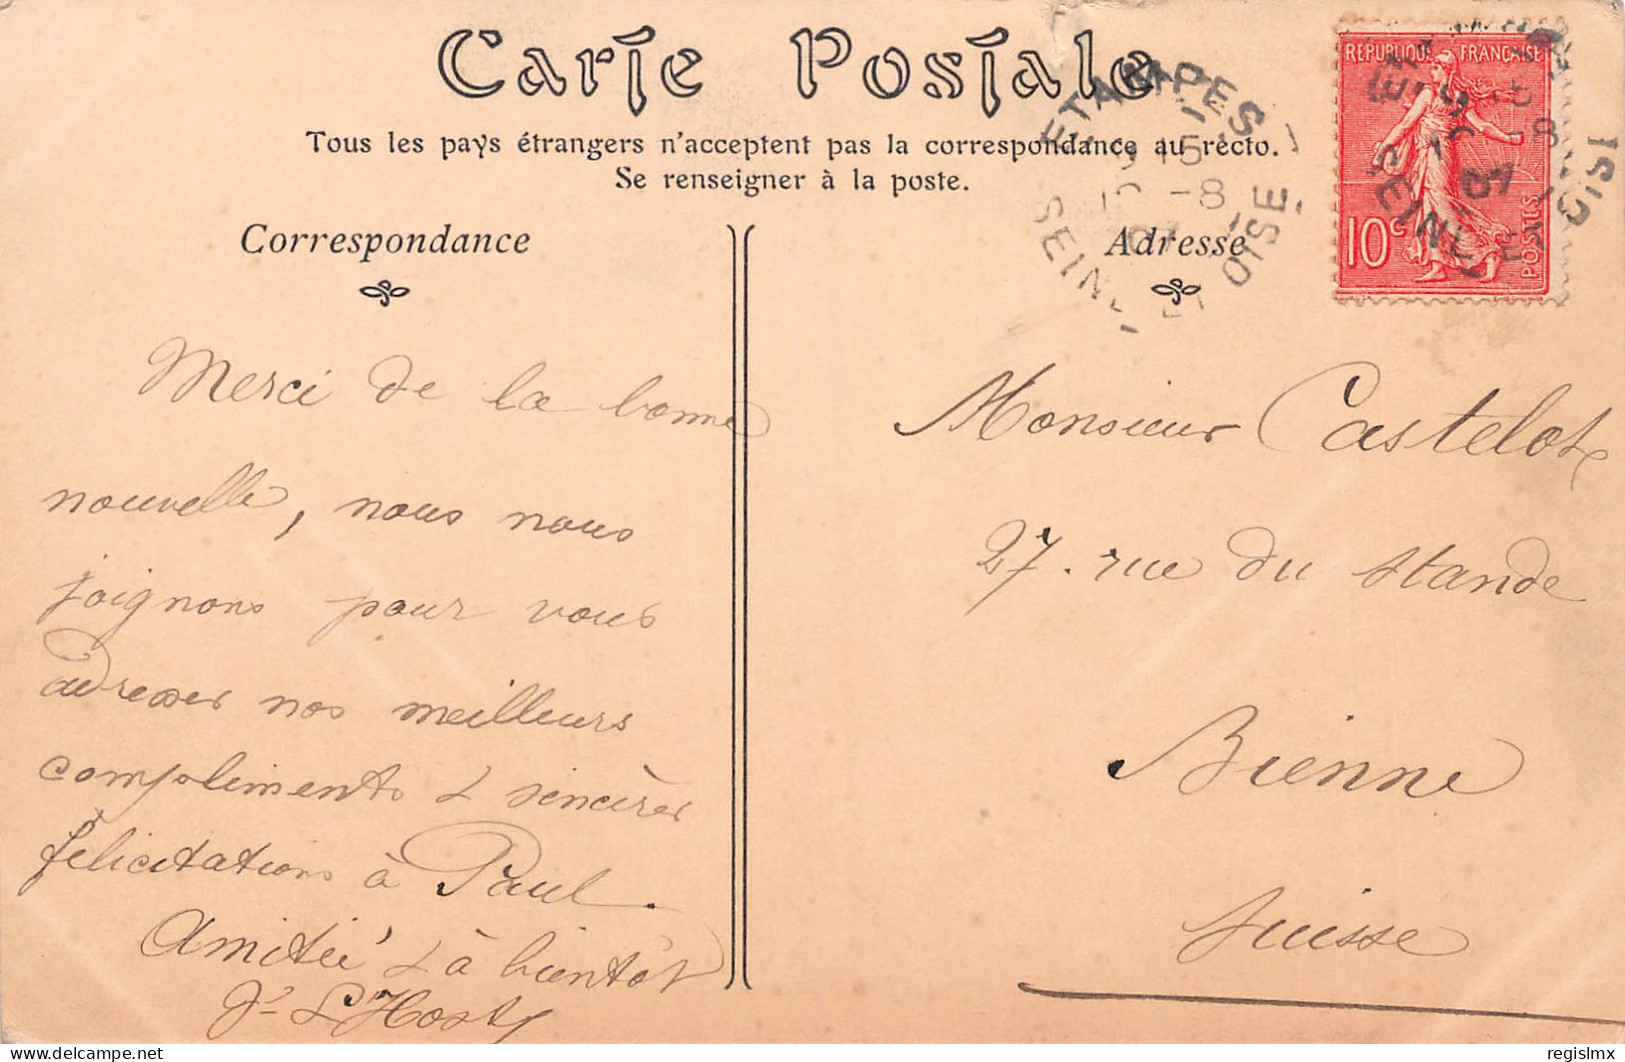 Carte Postale
Tous les pays étrangers n'acceptent pas la correspondance au recto.
Se renseigner à la poste.
Correspondance
Adresse
RÉPUBLIQUE FRANÇAISE
10c
POSTES
ETAMPES
15
-8
07
SEINE ET OISE
Merci de la bonne
nouvelle, nous nous
joignons pour vous
adresser nos meilleurs
compliments & sincères
félicitations à Paul.
Amitié & à bientôt
J. L'Hoste
Monsieur Castelot
27. rue du Stande
Bienne
Suisse
delcampe.net
regislmx